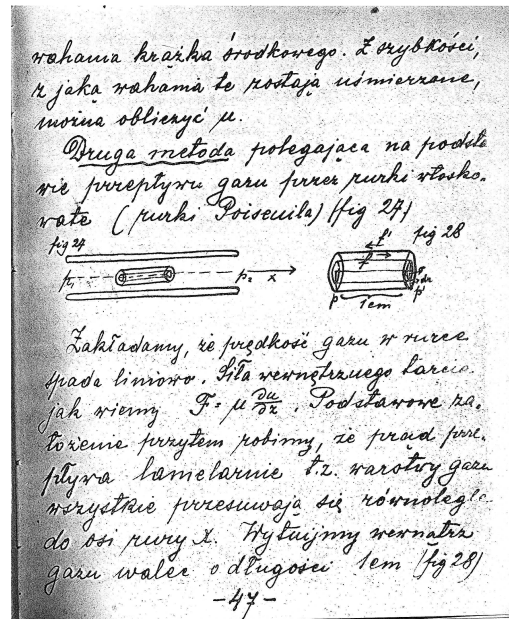 wahania krążka środkowego. Z szybkości,
z jaką wahania te zostają uśmierzone,
można obliczyć μ.
Druga metoda polegająca na podsta
wie przepływu gazu przez rurki włosko.
wate (rurki Poiseuila) (fig 27)
fig 27
fig 28
f'
f
p₁
p₂
x
r
dr
p
p'
1cm
Zakładamy, że prędkość gazu w rurce
spada liniowo. Siła wewnętrznego tarcia
jak wiemy F = μ du/dz. Podstawowe za.
łożenie przytem robimy, że prąd prze.
pływa lamelarnie t.z. warstwy gazu
wszystkie przesuwają się równolegle
do osi rury X. Wytnijmy wewnątrz
gazu walec o długości 1cm (fig 28)
-47-